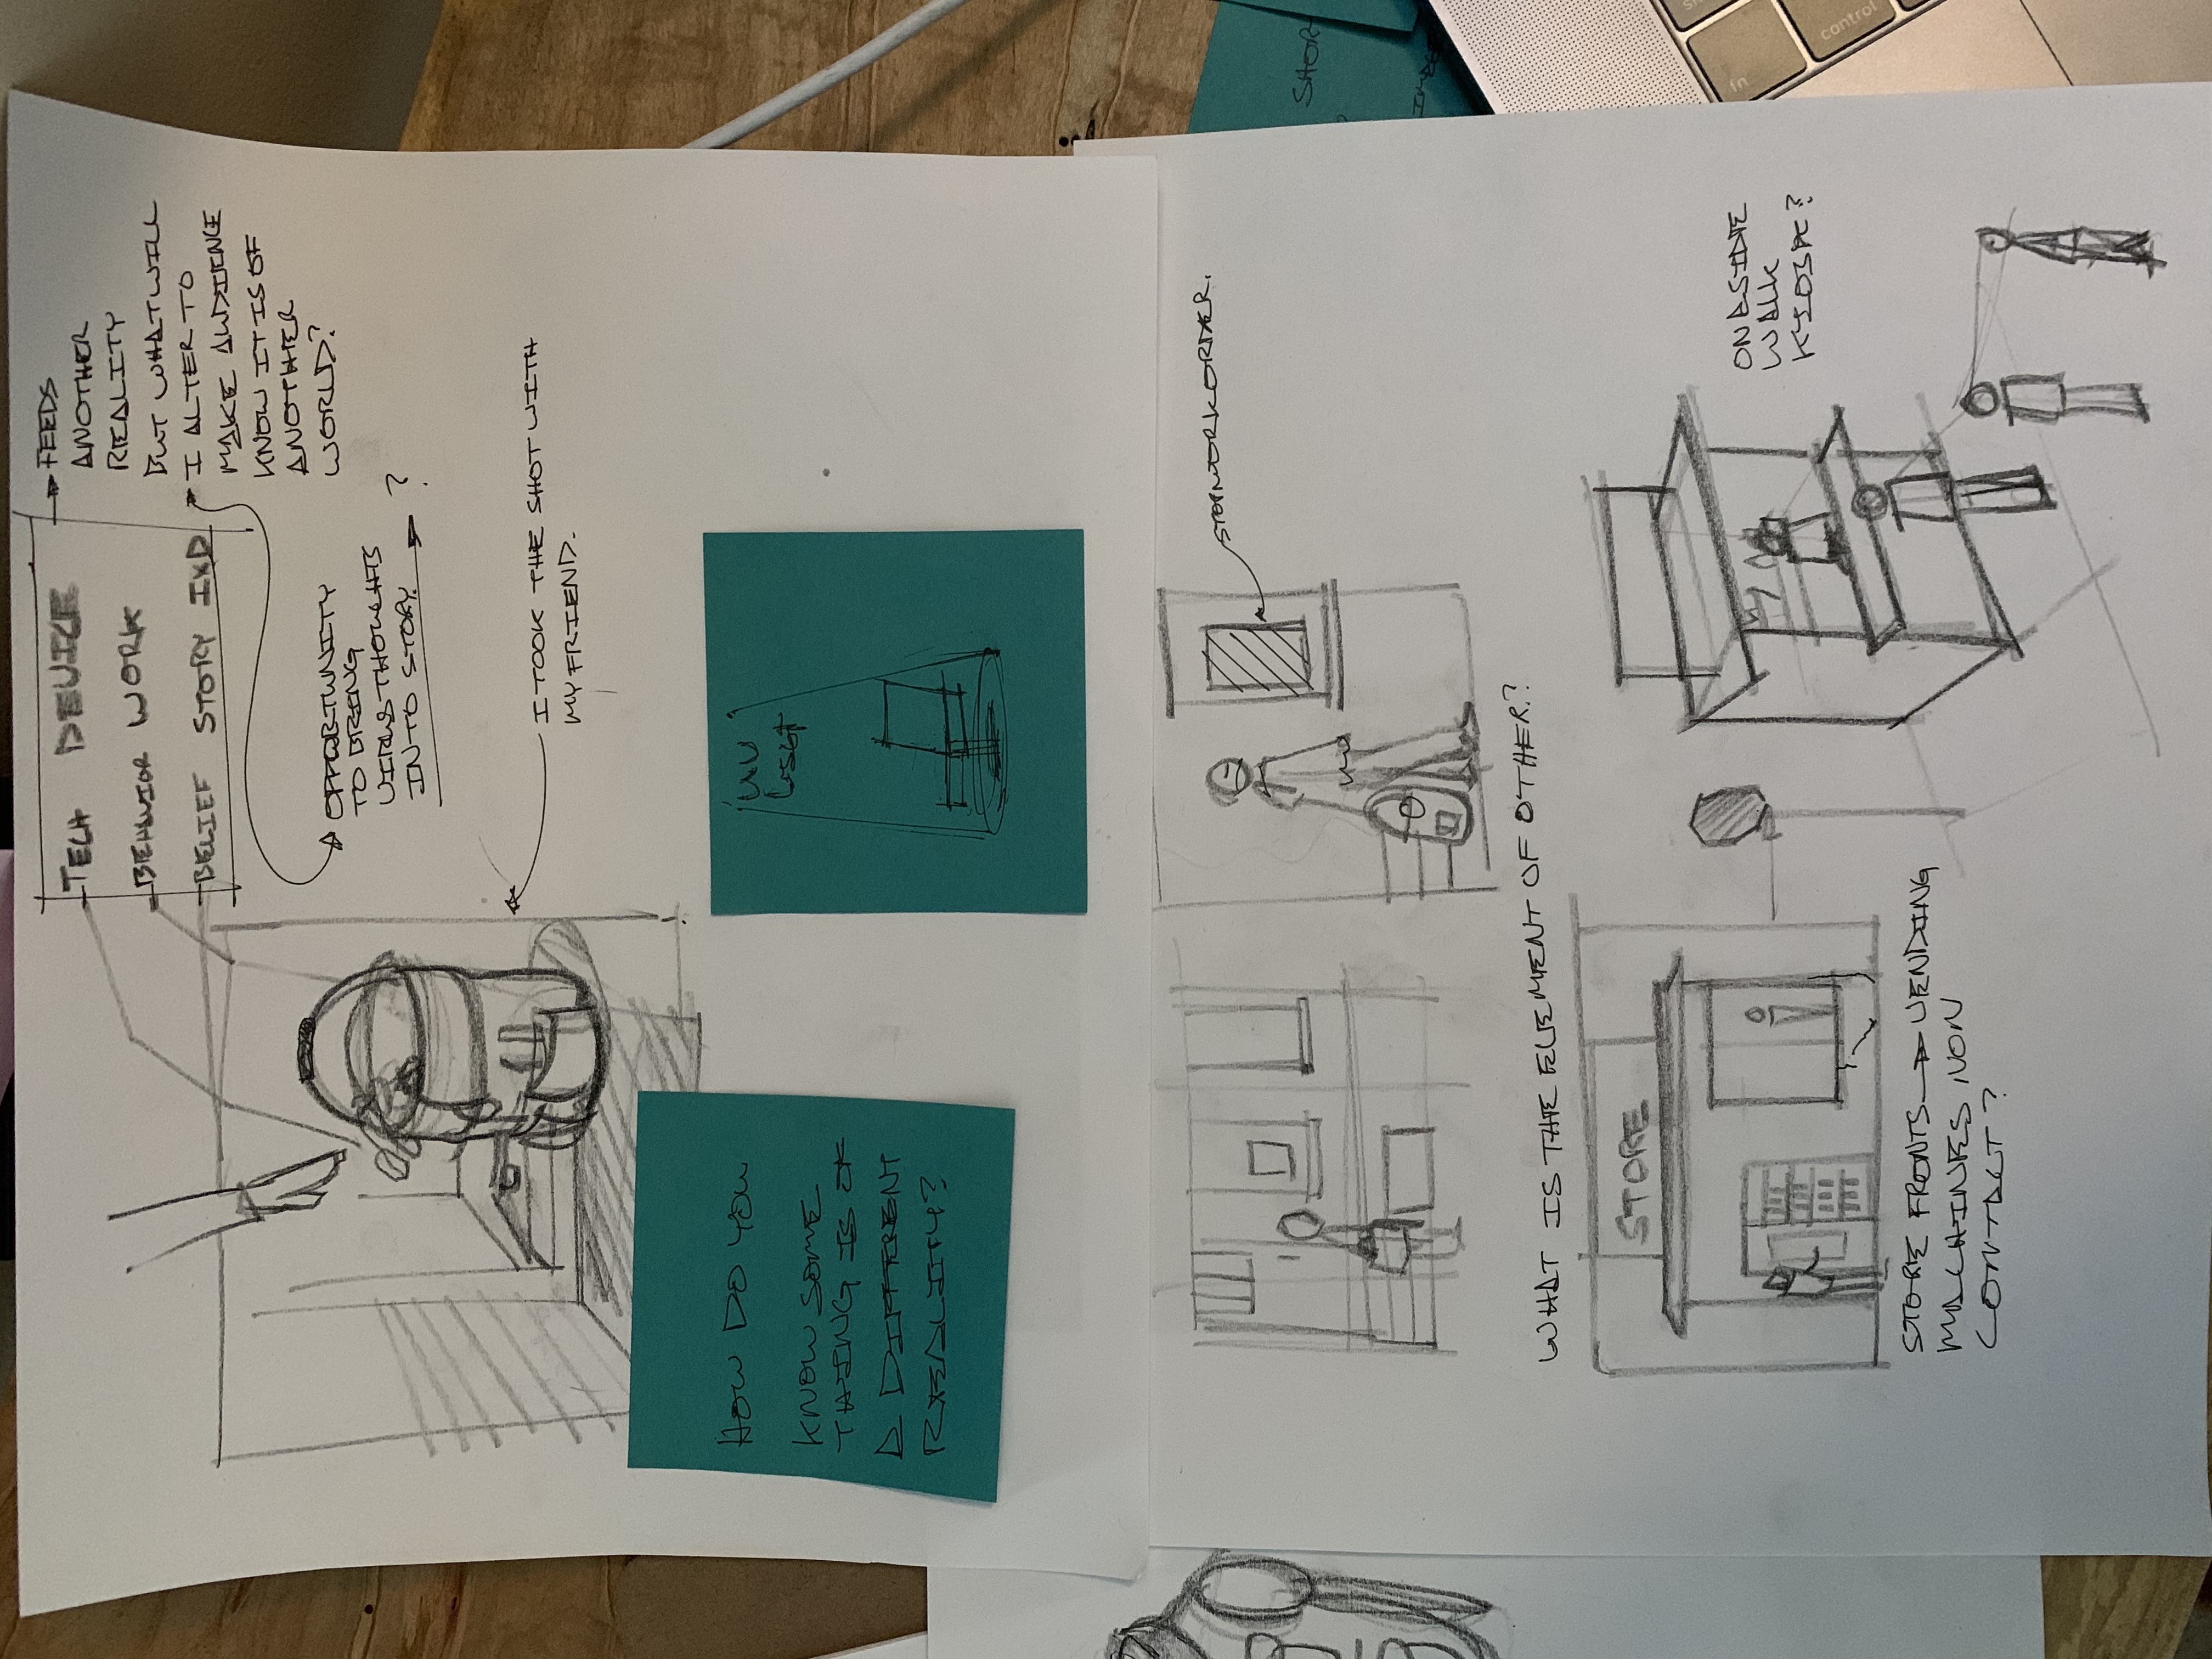 TECH DEVICE
BEHAVIOR WORK
BELIEF STORY IXD
FEEDS
ANOTHER
REALITY
BUT WHAT WILL
I ALTER TO
MAKE AUDIENCE
KNOW IT IS OF
ANOTHER
WORLD?
OPPORTUNITY
TO BRING
VIRUS THOUGHTS
INTO STORY. ?
I TOOK THE SHOT WITH
MY FRIEND.
HOW DO YOU
KNOW SOME
THING IS OF
A DIFFERENT
REALITY?
UV
STOP WORK ORDER.
SHOR
WHAT IS THE ELEMENT OF OTHER?
STORE
ON A SIDE
WALK
KIOSK?
STORE FRONTS → VENDING
MACHINES NON
CONTACT?
fn
control